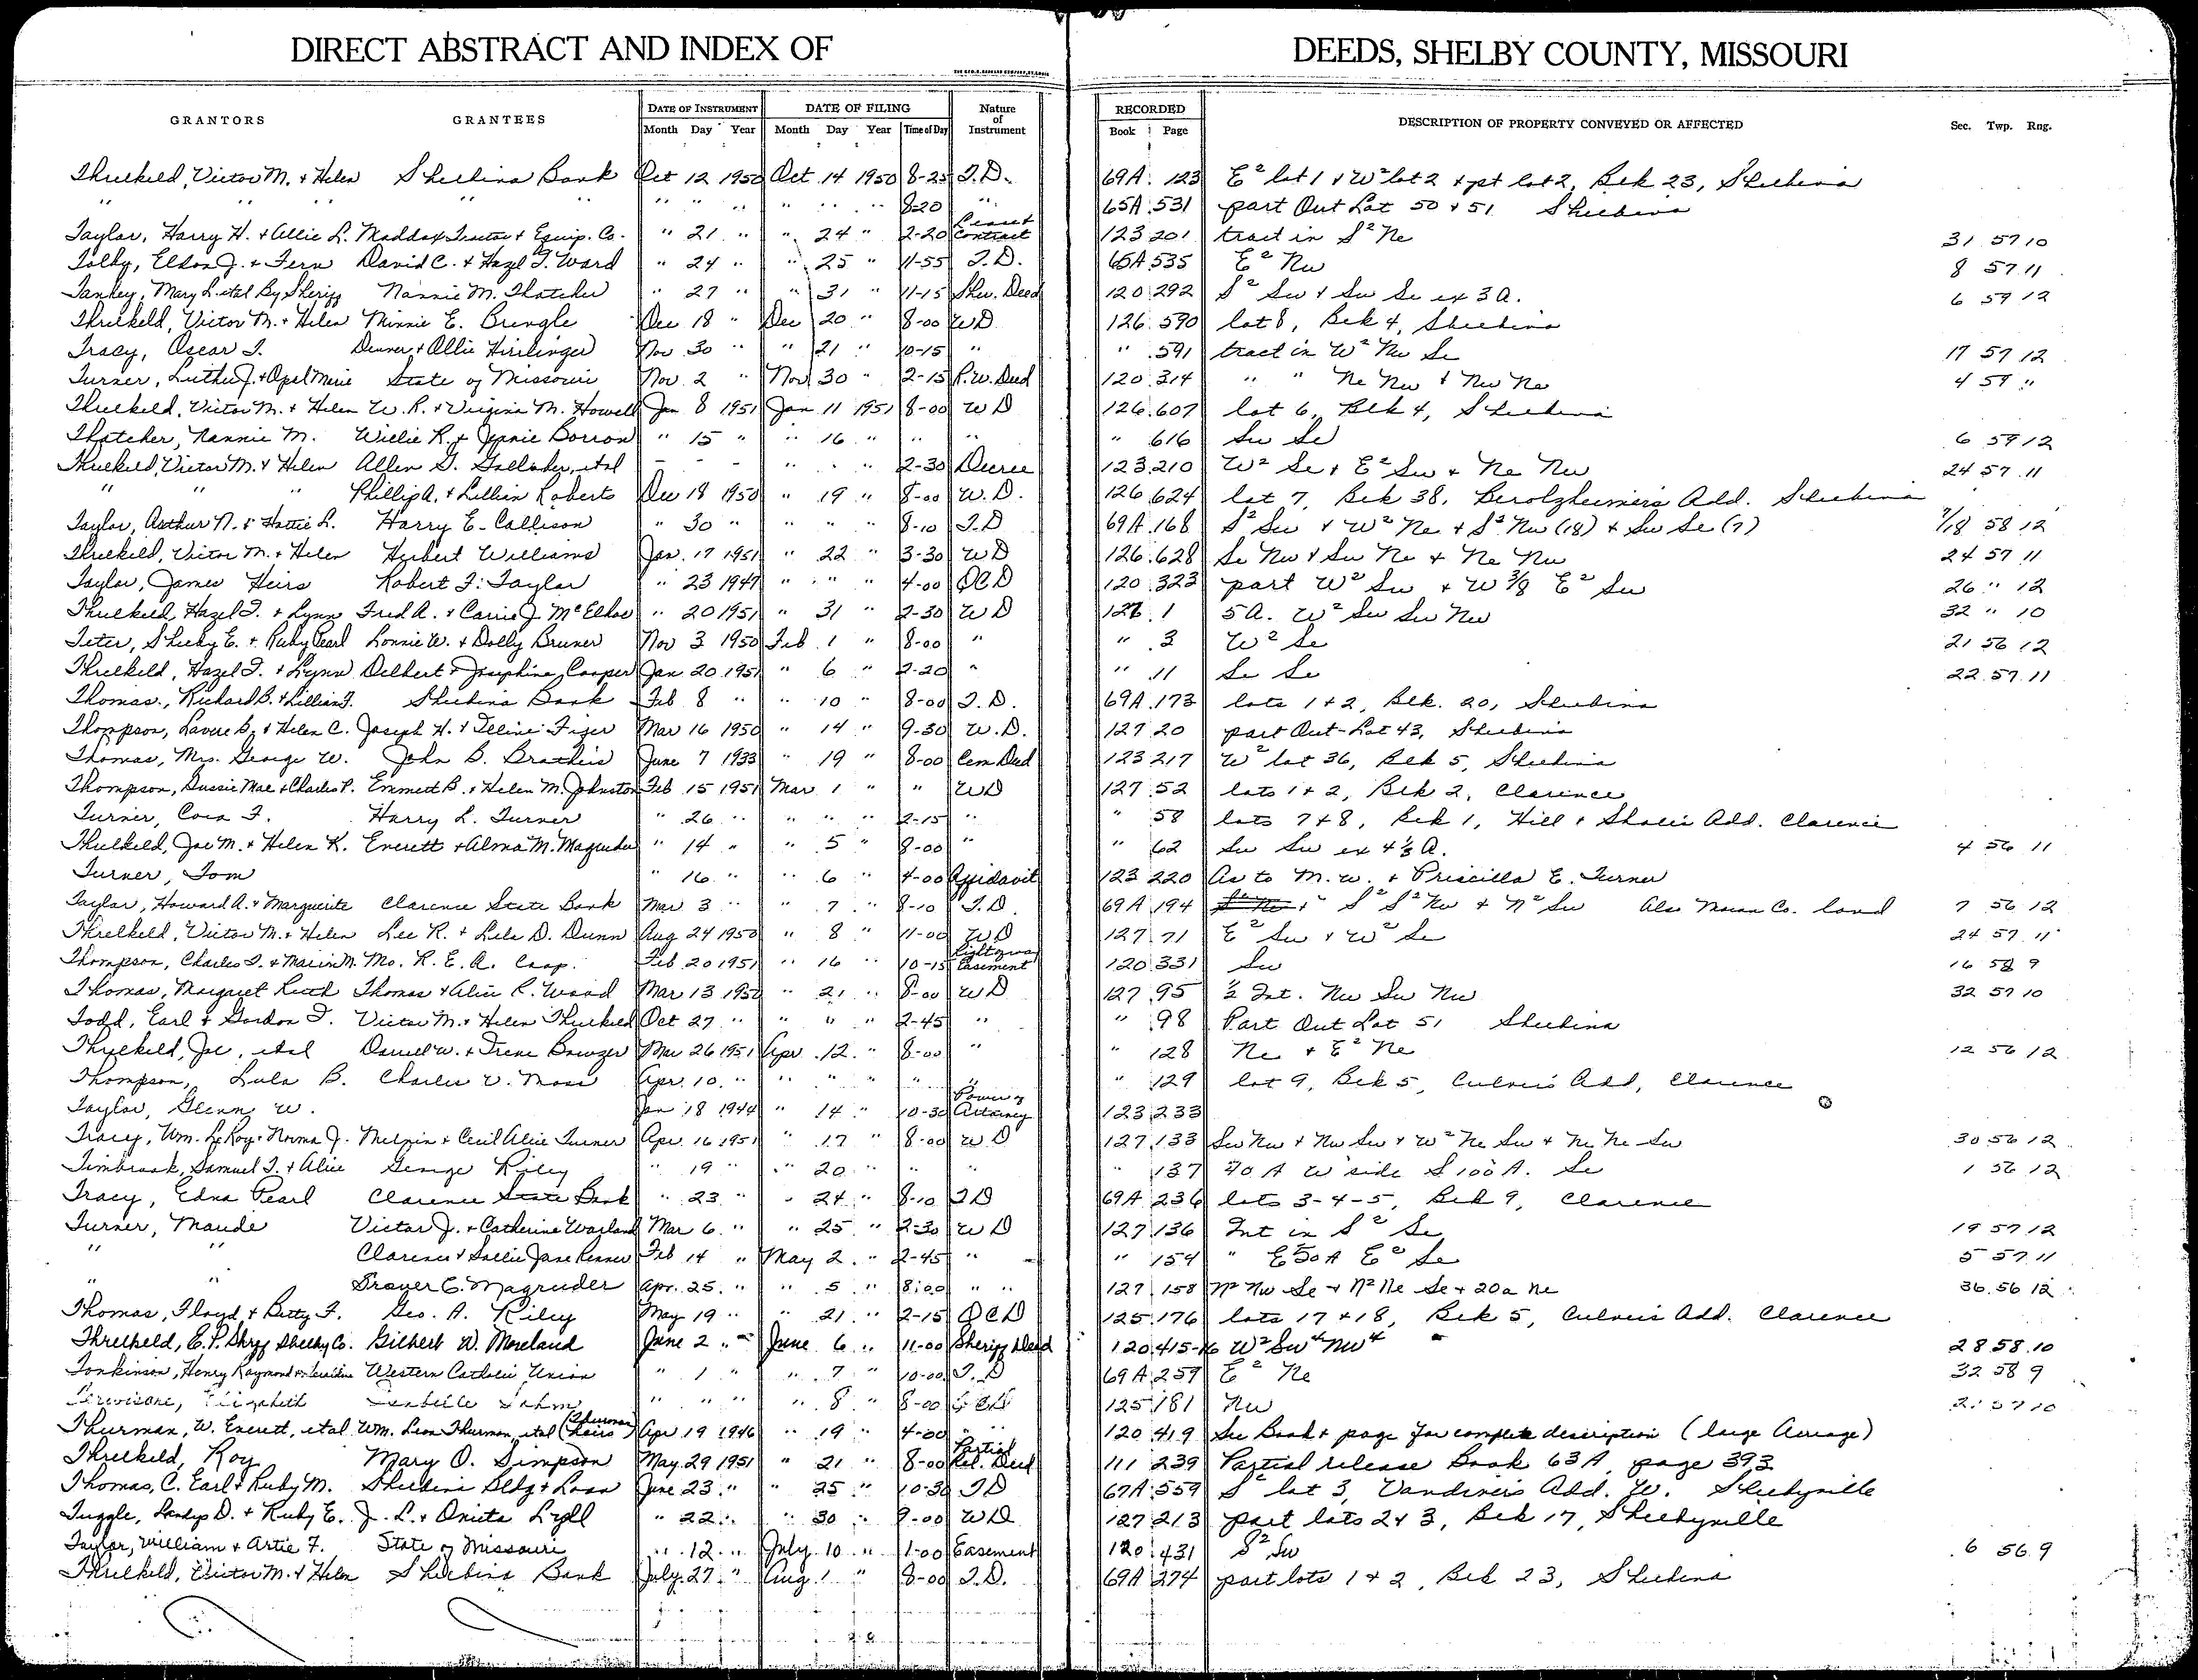 DIRECT ABSTRACT AND INDEX OF DEEDS, SHELBY COUNTY, MISSOURI
GRANTORS GRANTEES DATE OF INSTRUMENT DATE OF FILING Nature of Instrument RECORDED DESCRIPTION OF PROPERTY CONVEYED OR AFFECTED Sec. Twp. Rng.
Month Day Year Month Day Year Time of Day Book Page
Threlkeld, Victor M. & Helen Shelbina Bank Oct 12 1950 Oct. 14 1950 8-25 T.D. 69A 123 E² lot 1 & W² lot 2 & pt lot 2, Blk 23, Shelbina
" " " " " " " " " " 8-20 " 65A 531 part Out Lot 50 & 51 Shelbina
Taylor, Harry H. & Allie L. Maddox Tractor & Equip. Co. " 21 " " 24 " 2-20 Contract 123 201 tract in S² Ne 31 57 10
Tolby, Eldon J. & Fern David C. & Hazel T. Ward " 24 " " 25 " 11-55 T.D. 65A 535 E² Nw 8 57 11
Tankey, Mary L. etal By Sheriff Nannie M. Thatcher " 27 " " 31 " 11-15 Sher. Deed 120 292 S² Sw & Sw Se ex 3 A. 6 59 12
Threlkeld, Victor M. & Helen Minnie E. Pringle Dec 18 " Dec 20 " 8-00 WD 126 590 lot 8, Blk 4, Shelbina
Tracy, Oscar T. Denver & Allie Hirlinger Nov 30 " " 21 " 10-15 " " 591 tract in W² Nw Se 17 57 12
Turner, Luther J. & Opal Marie State of Missouri Nov 2 " Nov 30 " 2-15 R.W. Deed 120 314 " " Ne Nw & Nw Ne 4 59 "
Threlkeld, Victor M. & Helen W. R. & Virginia M. Howell Jan 8 1951 Jan 11 1951 8-00 WD 126 607 lot 6, Blk 4, Shelbina
Thatcher, Nannie M. Willie R. & Jennie Borron " 15 " " 16 " " " " 616 Sw Se 6 59 12
Threlkeld, Victor M. & Helen Allen G. Gallaher, etal - - - " " " 2-30 Decree 123 210 W² Se & E² Sw & Ne Nw 24 57 11
" " " Phillip A. & Lillian Roberts Dec 18 1950 " 19 " 8-00 W.D. 126 624 lot 7, Blk 38, Berolzheimer's Add. Shelbina
Taylor, Arthur N. & Hattie L. Harry E. Callison " 30 " " " " 8-10 T.D 69A 168 S² Sw & W² Ne & S² Nw (18) & Sw Se (7) 7/18 58 12
Threlkeld, Victor M. & Helen Herbert Williams Jan. 17 1951 " 22 " 3-30 WD 126 628 Se Nw & Sw Ne & Ne Nw 24 57 11
Taylor, James Heirs Robert F. Taylor " 23 1947 " " " 4-00 QCD 120 323 part W² Sw & W 3/8 E² Sw 26 " 12
Threlkeld, Hazel T. & Lynn Fred A. & Carrie J. McElroy " 20 1951 " 31 " 2-30 WD 127 1 5 A. W² Sw Sw Nw 32 " 10
Teter, Shelby E. & Ruby Pearl Lonnie W. & Dolly Bruner Nov 3 1950 Feb 1 " 8-00 " " 3 W² Se 21 56 12
Threlkeld, Hazel T. & Lynn Delbert & Josephine Cooper Jan 20 1951 " 6 " 2-20 " " 11 Se Se 22 57 11
Thomas, Richard B. & Lillian F. Shelbina Bank Feb 8 " " 10 " 8-00 T.D. 69A 173 lots 1 & 2, Blk. 20, Shelbina
Thompson, & Helen C. Joseph H. & Figer Mar 16 1950 " 14 " 9-30 W.D. 127 20 part Out-Lot 43, Shelbina
Thomas, Mrs. George W. John B. June 7 1933 " 19 " 8-00 Cem Deed 123 217 W² lot 36, Blk 5, Shelbina
Thompson, Gussie Mae & Charles P. Emmett B. & Helen M. Johnston Feb 15 1951 Mar 1 " " WD 127 52 lots 1 & 2, Blk 2, Clarence
Turner, Cora F. Harry L. Turner " 26 " " " " 2-15 " " 58 lots 7 & 8, Blk 1, Hill & Add. Clarence
Threlkeld, Joe M. & Helen K. Everett & Alma M. Magruder " 14 " " 5 " 8-00 " " 62 Sw Sw ex 4 1/3 A. 4 56 11
Turner, Tom " 16 " " 6 " 4-00 Affidavit 123 220 As to M. W. & Priscilla E. Turner
Taylor, Howard A. & Marguerite Clarence State Bank Mar 3 " " 7 " 8-10 T.D. 69A 194 S² S² Nw & N² Sw Also Macon Co. land 7 56 12
Threlkeld, Victor M. & Helen Lee R. & Lela D. Dunn Aug 24 1950 " 8 " 11-00 WD 127 71 E² Sw & W² Se 24 57 11
Thompson, Charles T. & Marie M. Mo. R. E. A. Coop. Feb 20 1951 " 16 " 10-15 Right of way Easement 120 331 Sw 16 58 9
Thomas, Margaret Ruth Thomas & Alice R. Wood Mar 13 1950 " 21 " 8-00 WD 127 95 ½ Int. Nw Sw Nw 32 57 10
Todd, Earl & Gordon T. Victor M. & Helen Threlkeld Oct 27 " " " " 2-45 " " 98 Part Out Lot 51 Shelbina
Threlkeld, Joe, etal Darrell W. & Irene Bowzer Mar 26 1951 Apr 12 " 8-00 " " 128 Ne & E² Ne 12 56 12
Thompson, Lula B. Charles V. Moss Apr. 10 " " " " " " " 129 lot 9, Blk 5, Culver's Add, Clarence
Taylor, Glenn W. Jan 18 1944 " 14 " 10-30 Power of Attorney 123 233
Tracy, Wm. LeRoy & Norma J. Melvin & Cecil Alice Turner Apr. 16 1951 " 17 " 8-00 WD 127 133 Sw Nw & Nw Sw & W² Ne Sw & Ne Ne Sw 30 56 12
Timbrook, Samuel T. & Alice George Riley " 19 " " 20 " " " " 137 70 A W side S 100 A. Se 1 56 12
Tracy, Edna Pearl Clarence State Bank " 23 " " 24 " 8-10 TD 69A 236 lots 3-4-5, Blk 9, Clarence
Turner, Maude Victor J. & Catherine Wayland Mar 6 " " 25 " 2-30 WD 127 136 Int in S² Se 19 57 12
" " Clarence & Sallie Jane Renner Feb 14 " May 2 " 2-45 " " 154 " E 50 A E² Se 5 57 11
" " Drayer C. Magruder Apr. 25 " " 5 " 8:00 " " 127 158 N² Nw Se & N² Ne Se & 20a Ne 36 56 12
Thomas, Floyd & Betty F. Geo. A. Riley May 19 " " 21 " 2-15 QCD 125 176 lots 17 & 18, Blk 5, Culver's Add. Clarence
Threlkeld, E.P. Shrff Shelby Co. Gilbert W. Moreland June 2 " June 6 " 11-00 Sheriff Deed 120 415-16 W² Sw⁴ Nw⁴ 28 58 10
Tonkinson, Henry Raymond & Geraldine Western Catholic Union " 1 " " 7 " 10-00 T.D 69A 259 E² Ne 32 58 9
Elizabeth " " " " 8 " 8-00 125 181 Nw 57 10
Thurman, W. Everett, etal Wm. Leon Thurman, etal (Thurman heirs) Apr 19 1946 " 19 " 4-00 " 120 419 See Book & page for complete description (large Acreage)
Threlkeld, Roy Mary O. Simpson May 29 1951 " 21 " 8-00 Partial Rel. Deed 111 239 Partial release Book 63A, page 393
Thomas, C. Earl & Ruby M. Shelbina Bldg & Loan June 23 " " 25 " 10-30 TD 67A 559 S² lot 3, Vandiver's Add. W. Shelbyville
Tuggle, Landys D. & Ruby E. J. L. & Onieta Lyell " 22 " " 30 " 9-00 WD 127 213 part lots 2 & 3, Blk 17, Shelbyville
Taylor, William & Artie F. State of Missouri " 12 " July 10 " 1-00 Easement 120 431 S² Sw 6 56 9
Threlkeld, Victor M. & Helen Shelbina Bank July 27 " Aug 1 " 8-00 T.D. 69A 274 part lots 1 & 2, Blk 23, Shelbina